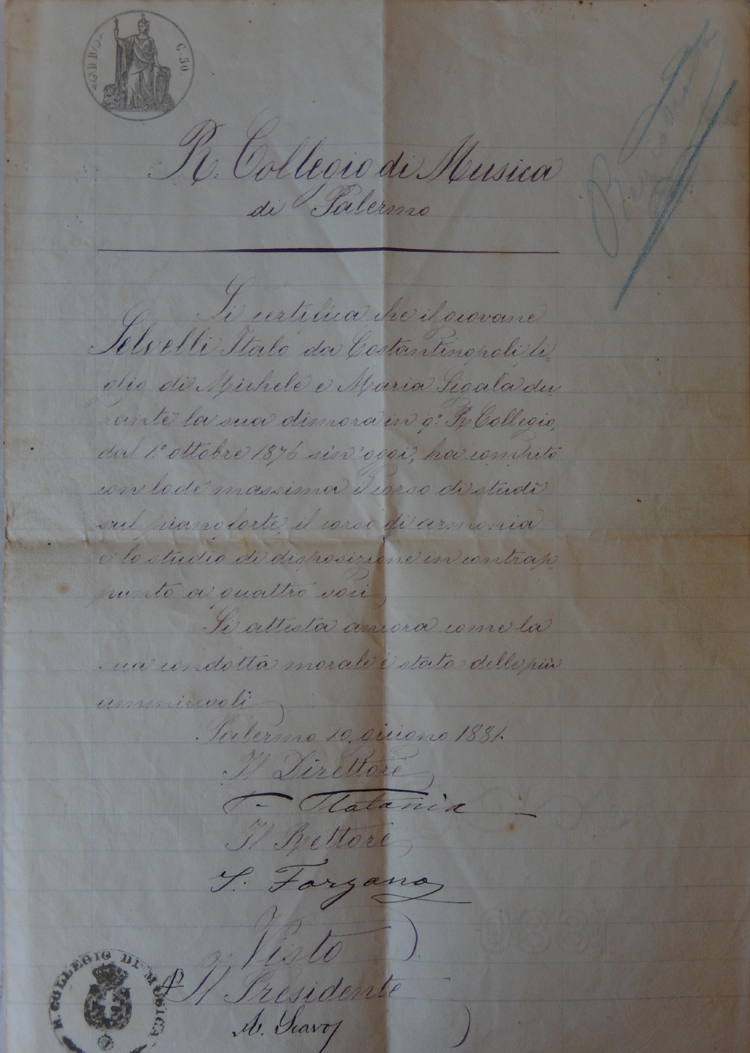 C. 50
R. Collegio di Musica
di Palermo
Si certifica che il giovane
Selvelli Italo da Costantinopoli fi-
glio di Michele e Maria Sigala du
rante la sua dimora in q.° R. Collegio,
dal 1° ottobre 1876 sin'oggi, ha compito
con lode massima il corso di studi
sul pianoforte, il corso di armonia
e lo studio di disposizione in contrap
punto a quattro voci.
Si attesta ancora come la
sua condotta morale è stata delle più
ammirevoli
Palermo 10 giugno 1881.
Il Direttore
Platania
Il Rettore
Forzano
Visto
Il Presidente
R. COLLEGIO DI MUSICA